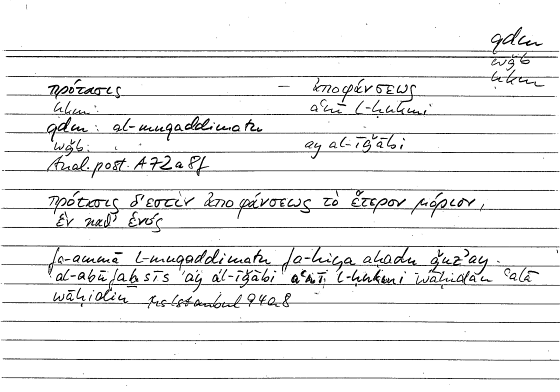 qdm
wǧb
ḥkm
πρότασις – ἀποφάνσεως
ḥkm: aʿnī l-ḥukmi
qdm: al-muqaddimatu
wǧb: ay al-īǧābi
Anal. post. A 72 a 8f
πρότασις δ'ἐστὶν ἀποφάνσεως τὸ ἕτερον μόριον,
ἓν καθ' ἑνός
fa-ammā l-muqaddimatu fa-hiya aḥadu ǧuzʾay
al-abūfabsīs ay al-īǧābi aʿnī l-ḥukmi wāḥidan ʿalā
wāḥidin Istanbul 94a8